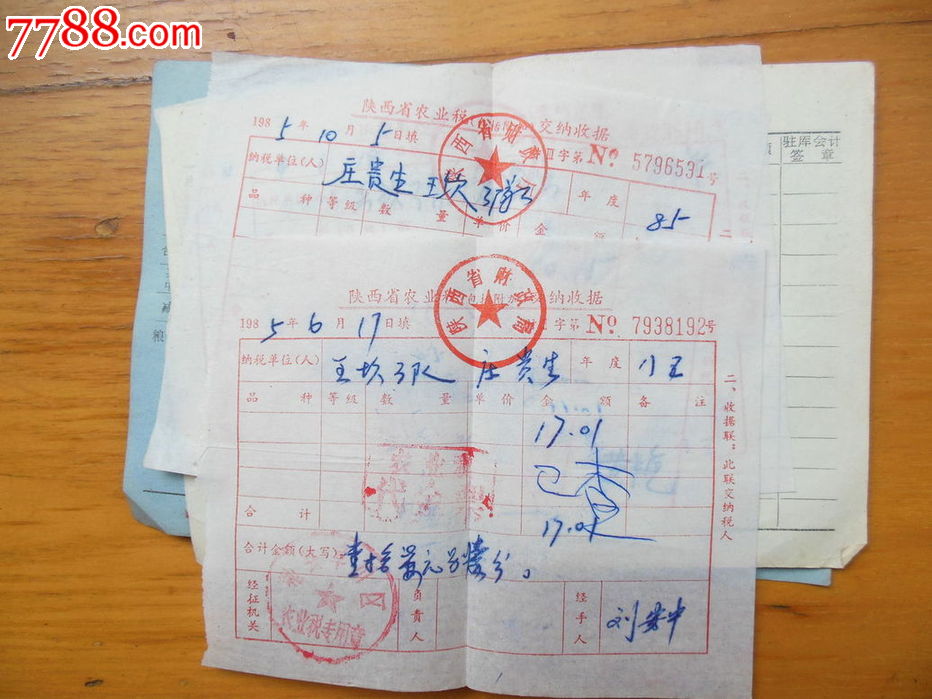 7788.com
陕西省农业税 交纳收据
1985年10月5日填
字第No 5796531号
纳税单位(人) 庄贵生 王坎 年度 85
品种 等级 数量 单价 金额
驻库会计
签章
陕西省农业税 交纳收据
陕西省财政局
1985年6月17日填
字第No 7938192号
纳税单位(人) 王坎 3队 庄贵生 年度
品种 等级 数量 单价 金额 备注
17.01
已查
合计 17.01
合计金额(大写) 壹拾 元 分。
经征机关 负责人 经手人 刘
农业税专用章
二、收据联:此联交纳税人